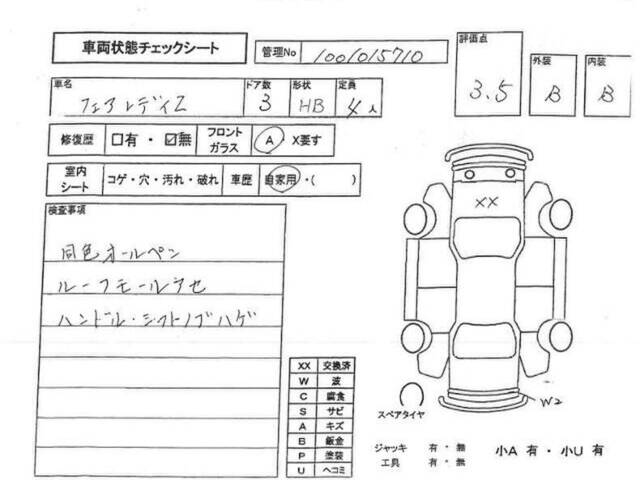 車両状態チェックシート
管理No 1001015710
評価点 3.5
外装 B
内装 B
車名 フェアレディZ
ドア数 3
形状 HB
定員 4人
修復歴 □有・☑無
フロントガラス A X要す
室内シート コゲ・穴・汚れ・破れ
車歴 自家用・( )
検査事項
同色オールペン
ルーフモールアセ
ハンドル・シフトノブハゲ
XX
XX 交換済
W 波
C 腐食
S サビ
A キズ
B 鈑金
P 塗装
U ヘコミ
W2
スペアタイヤ
ジャッキ 有・無
工具 有・無
小A 有・小U 有